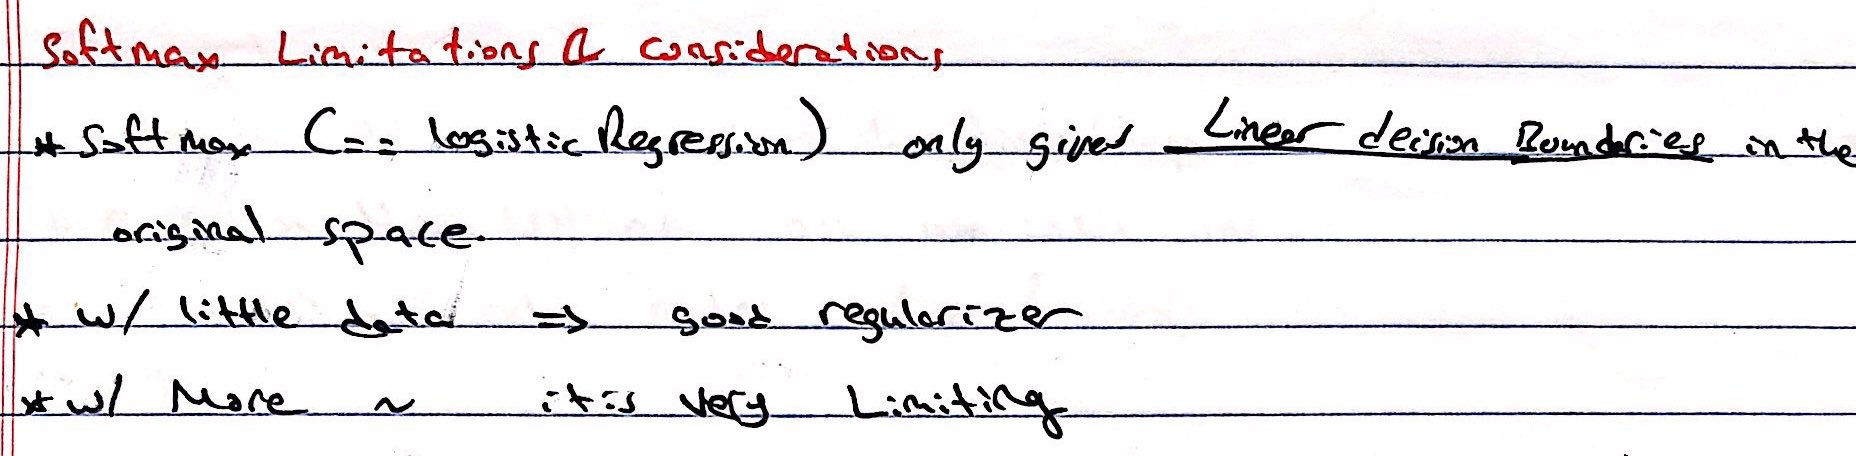 Softmax Limitations & considerations
* Softmax (== logistic Regression) only gives Linear decision Boundaries in the
original space.
* w/ little data => good regularizer
* w/ More ~ it is very Limiting